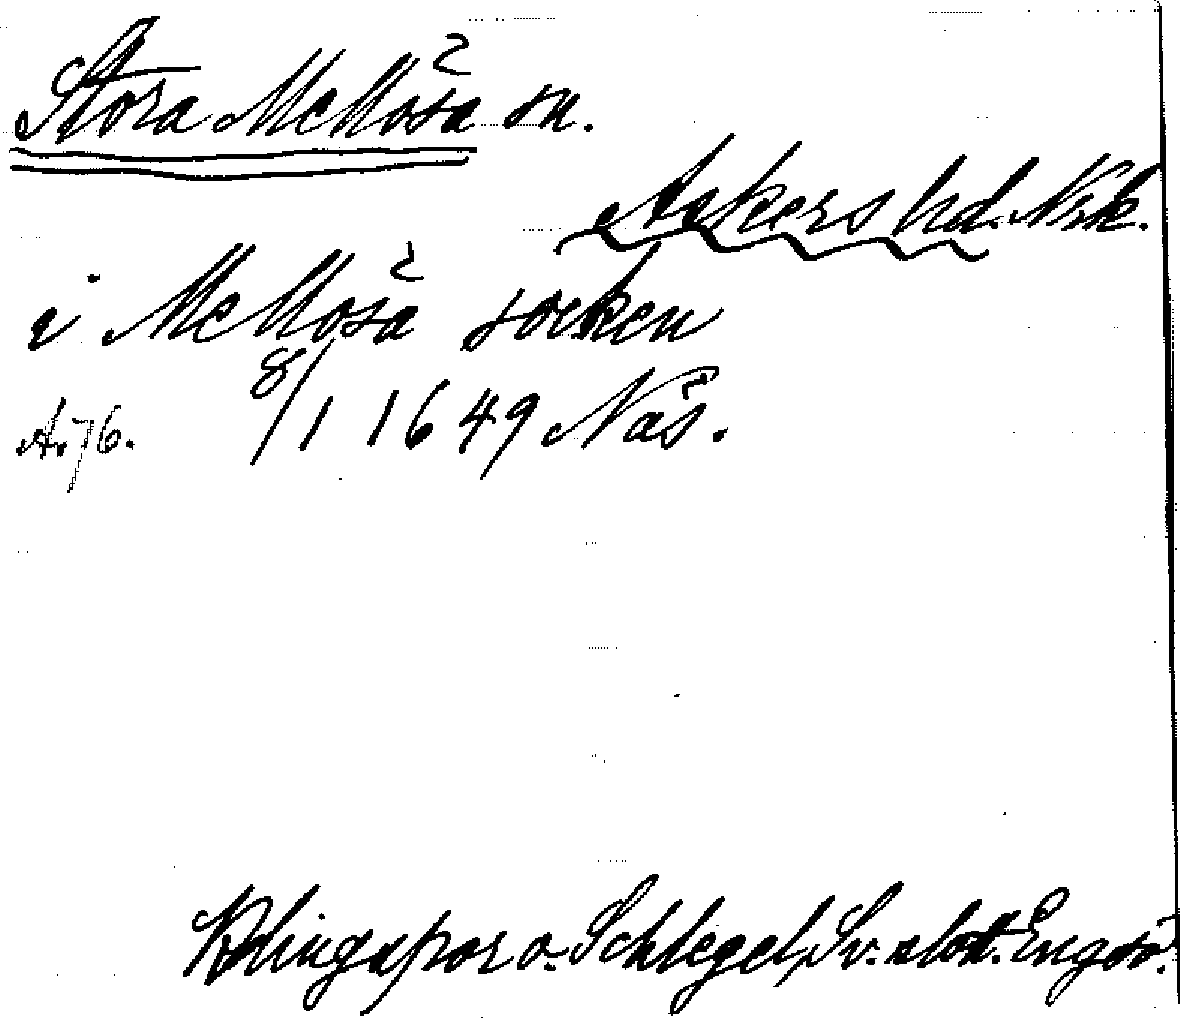 Stora Mellösa sn.
Askers hd. Nrk.
i Mellösa socken
A. 76. 8/1 1649 Näs.
Klingspor o. Schlegel, Sv. slott. Engsö.